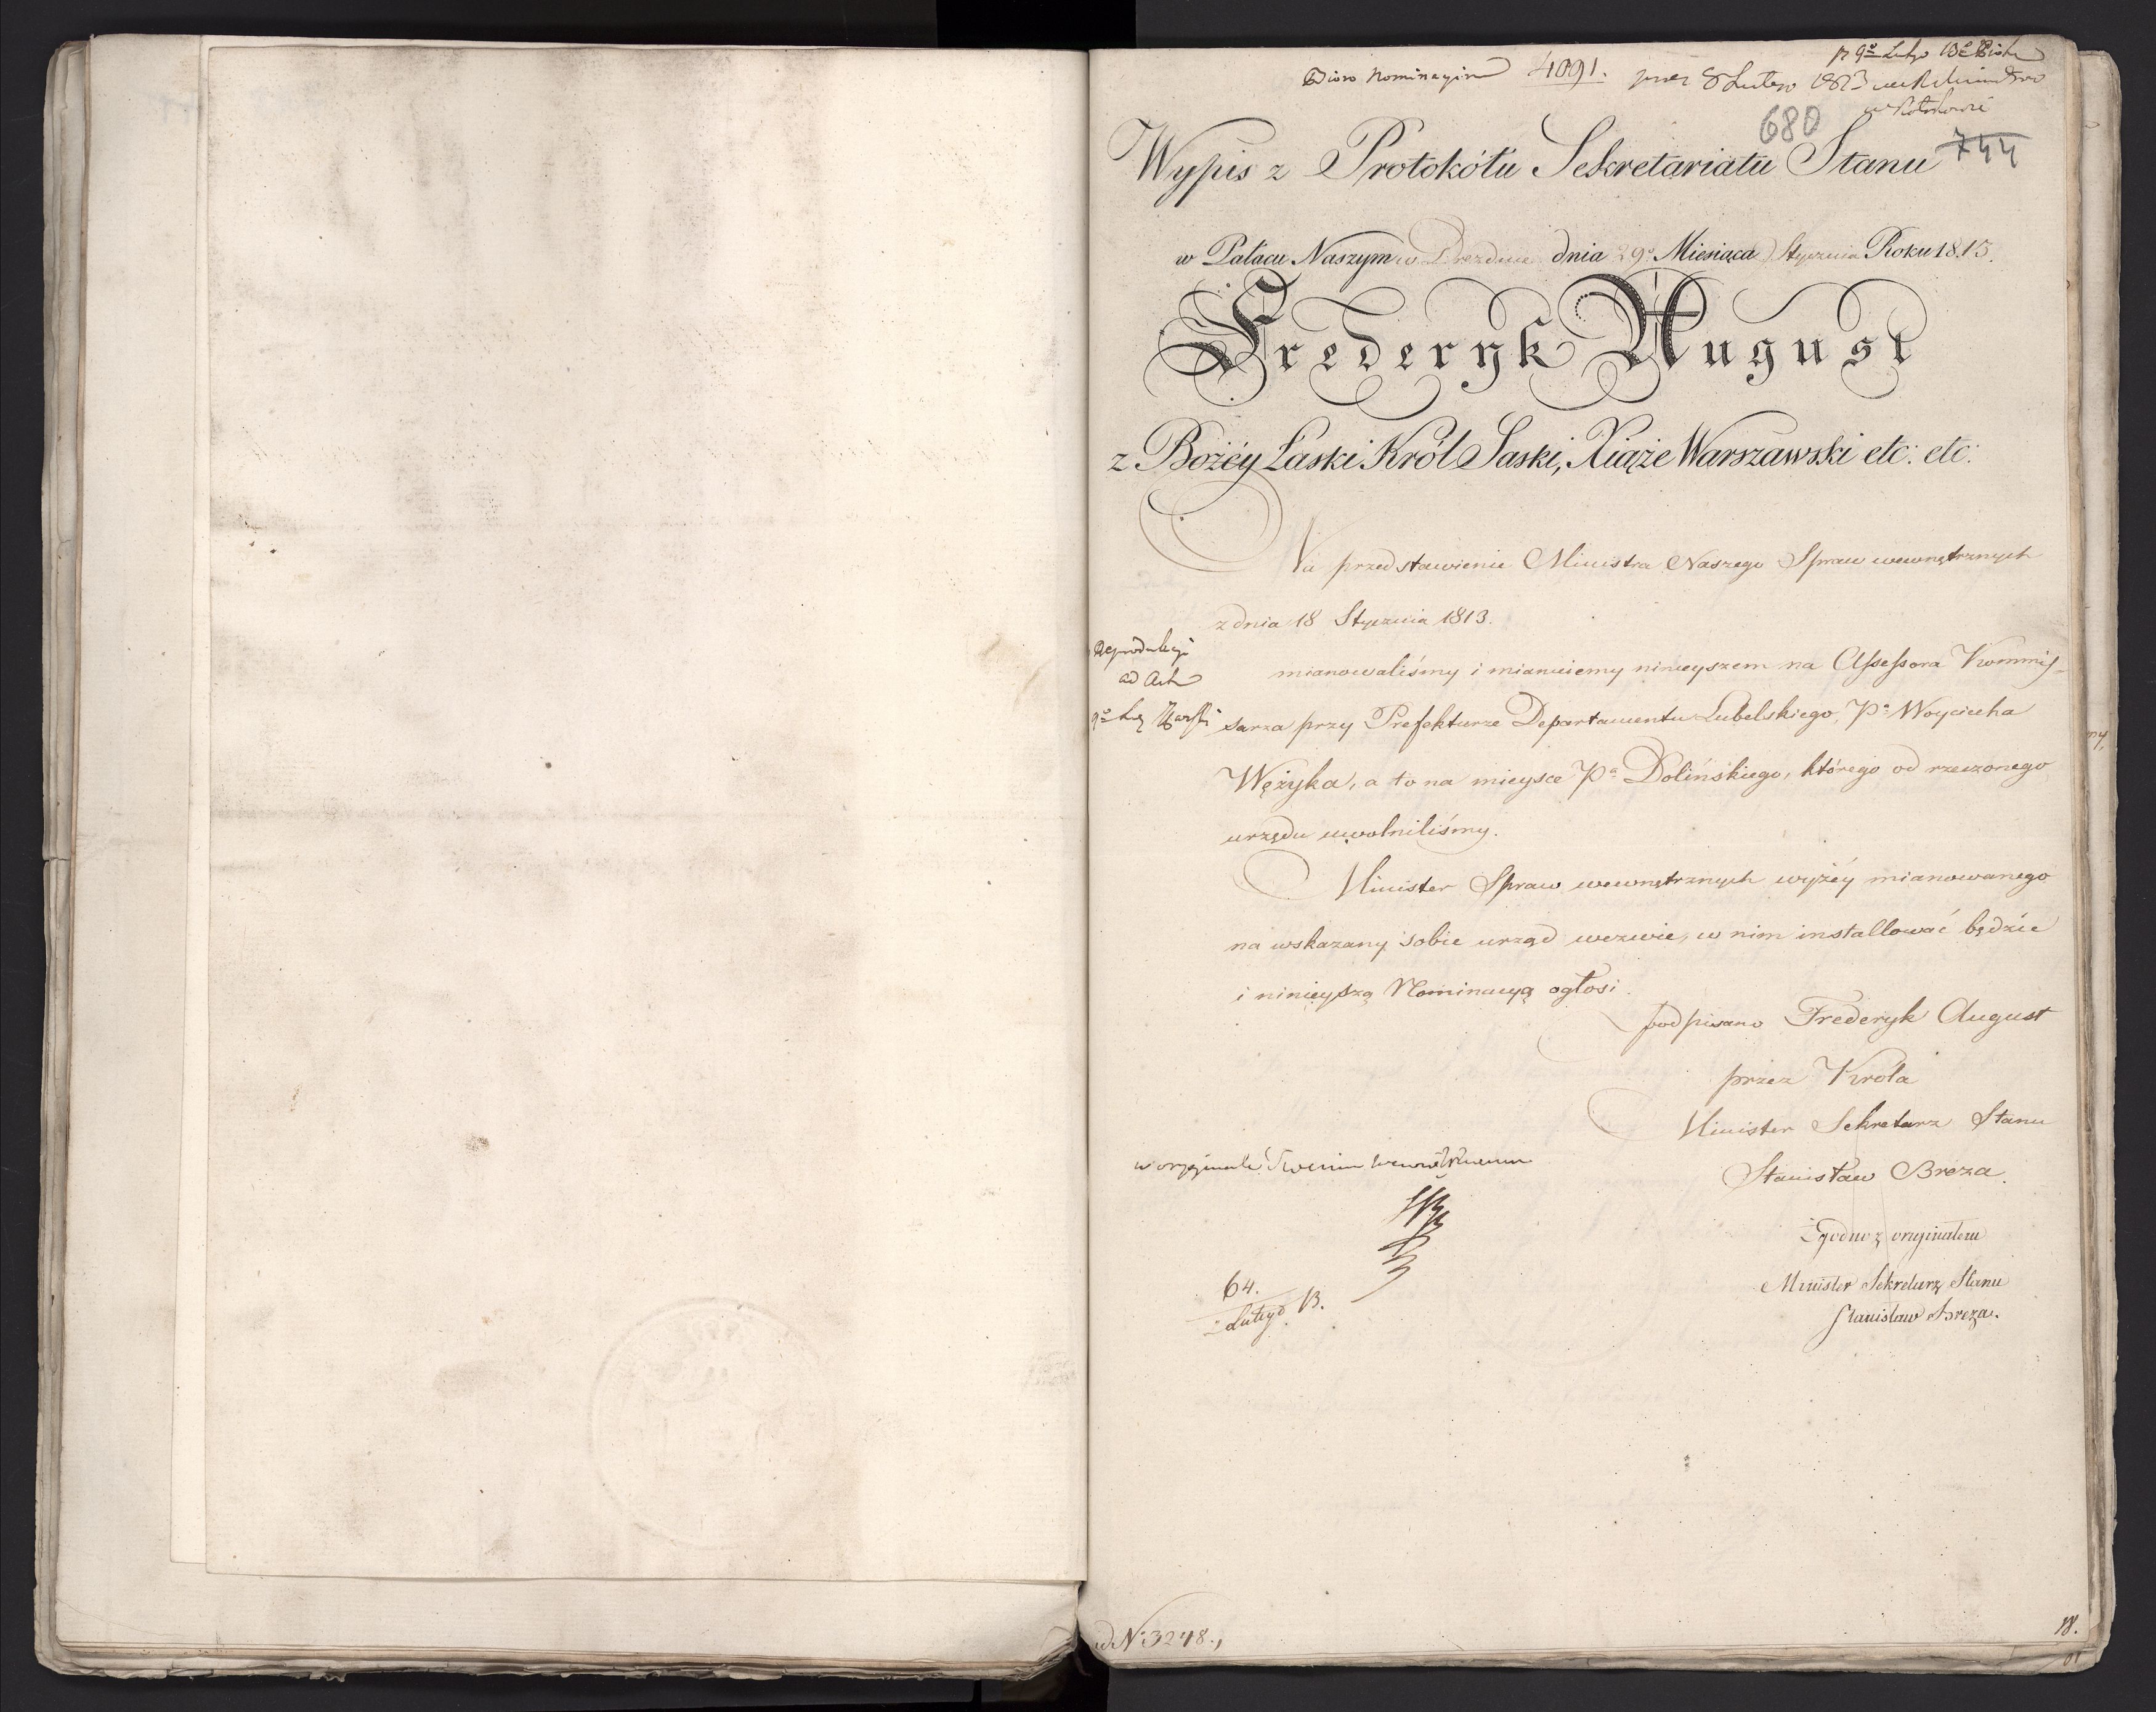 Bióro Nominacyine 4091.
680
744
Wypis z Protokółu Sekretariatu Stanu
w Pałacu Naszym w Dreznie dnia 29º Miesiąca Stycznia Roku 1813.
Frederyk August
z Bożéy Łaski Król Saski, Xiąże Warszawski etc: etc:
Na przedstawienie Ministra Naszego Spraw wewnętrznych
z dnia 18 Stycznia 1813.
mianowaliśmy i mianuiemy ninieyszem na Assessora Kommis-
sarza przy Prefekturze Departamentu Lubelskiego, Pª Woyciecha
Wężyka, a to na mieysce Pª Dolińskiego, którego od rzeczonego
urzędu uwolniliśmy.
Minister Spraw wewnętrznych wyżéy mianowanego
na wskazany sobie urząd wezwie, w nim installować będzie
i ninieyszą Nominacyą ogłosi.
podpisano Frederyk August
przez Króla
Minister Sekretarz Stanu
Stanisław Breza.
Zgodno z oryginałem
Minister Sekretarz Stanu
Stanisław Breza.
ad Act
w oryginale
64.
Lutego 13.
ad Nº 3248.,
18.